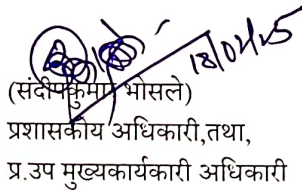 18/02/25
(संदीपकुमार भोसले)
प्रशासकीय अधिकारी,तथा,
प्र.उप मुख्यकार्यकारी अधिकारी